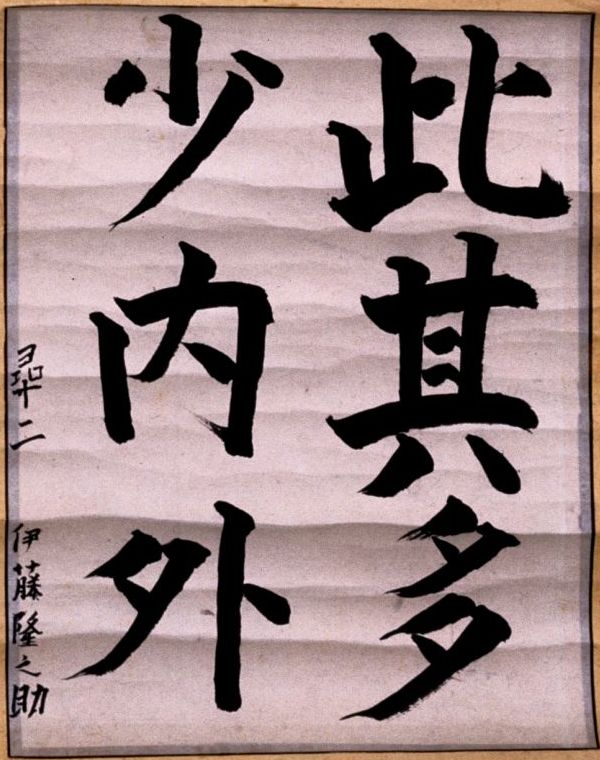 此其多
少内外
尋二 伊藤隆之助